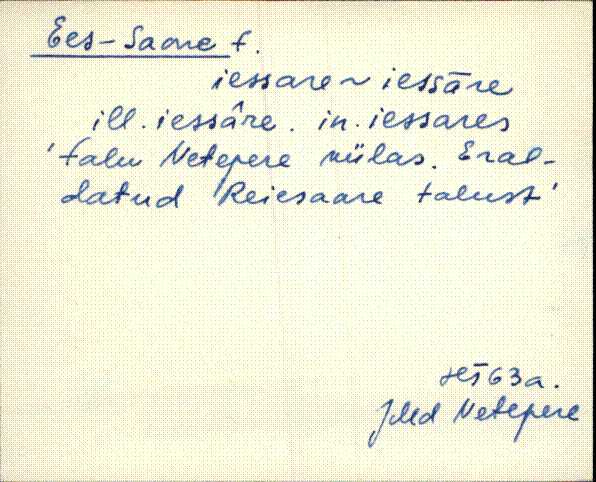 Ees-Saare t.
iessare ~ iessāre
ill. iessâre. in. iessares
'talu Netepere külas. Eral-
datud Reiesaare talust'
63a.
JMd Netepere